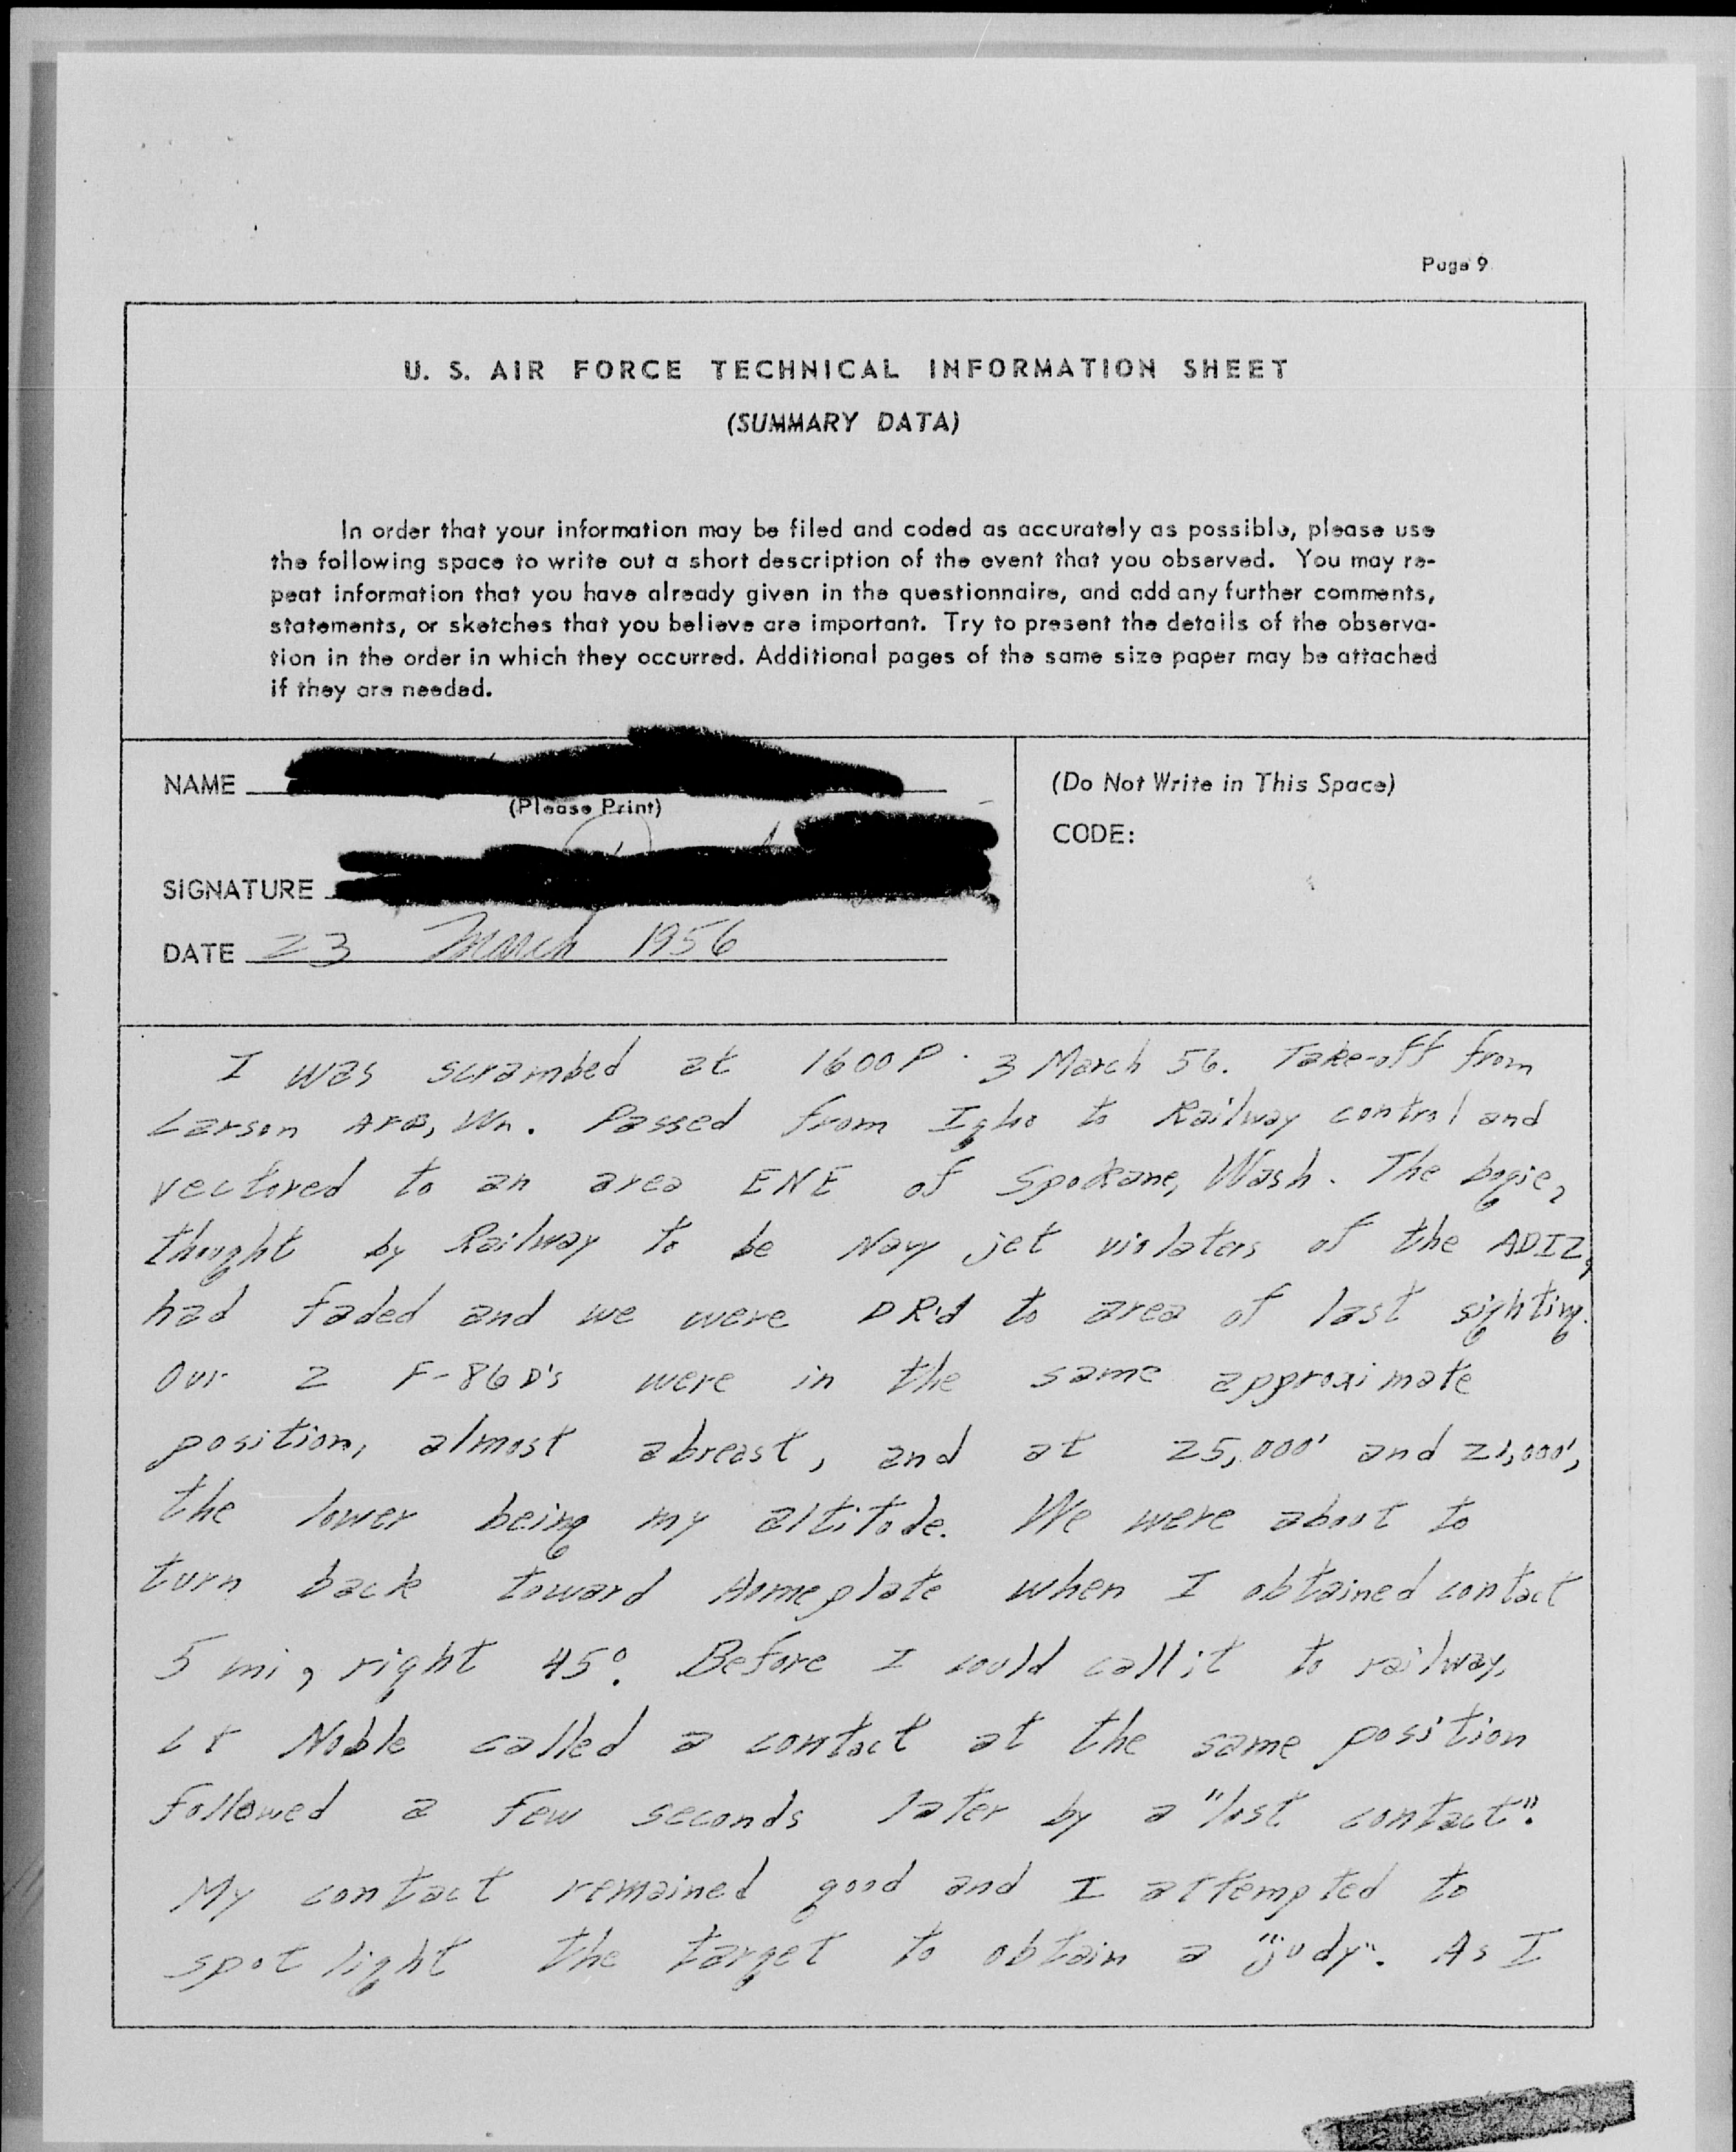 Page 9
U. S. AIR FORCE TECHNICAL INFORMATION SHEET
(SUMMARY DATA)
In order that your information may be filed and coded as accurately as possible, please use
the following space to write out a short description of the event that you observed. You may re-
peat information that you have already given in the questionnaire, and add any further comments,
statements, or sketches that you believe are important. Try to present the details of the observa-
tion in the order in which they occurred. Additional pages of the same size paper may be attached
if they are needed.
NAME
(Please Print)
SIGNATURE
DATE 23 March 1956
(Do Not Write in This Space)
CODE:
I was scrambed at 1600P 3 March 56. Take-off from
Larson AFB, Wn. Passed from to Railway control and
vectored to an area ENE of Spokane, Wash. The bogie,
thought by Railway to be Navy jet violaters of the ADIZ,
had faded and we were DR'd to area of last sighting.
Our 2 F-86D's were in the same approximate
position, almost abreast, and at 25,000' and
the lower being my altitude. We were about to
turn back toward Homeplate when I obtained contact
5 mi, right 45°. Before I could call it to railway,
Lt Noble called a contact at the same position
followed a few seconds later by a "lost contact".
My contact remained good and I attempted to
spot light the target to obtain a "judy". As I